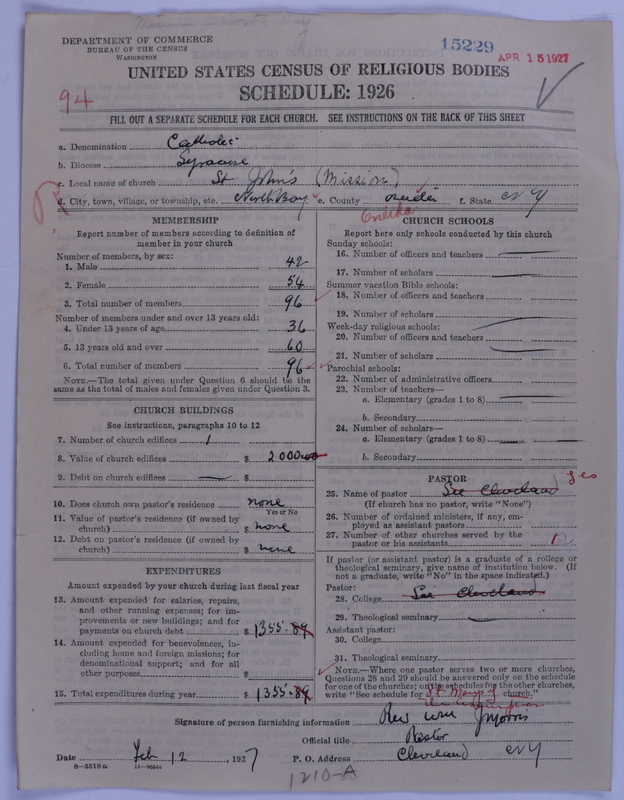 DEPARTMENT OF COMMERCE
BUREAU OF THE CENSUS
WASHINGTON
15229
APR 15 1927
UNITED STATES CENSUS OF RELIGIOUS BODIES
SCHEDULE: 1926
94
FILL OUT A SEPARATE SCHEDULE FOR EACH CHURCH. SEE INSTRUCTIONS ON THE BACK OF THIS SHEET
a. Denomination Catholic
b. Diocese Syracuse
c. Local name of church St John's (Mission)
d. City, town, village, or township, etc. North Bay e. County Oneida f. State NY
Oneida
MEMBERSHIP
Report number of members according to definition of
member in your church
Number of members, by sex:
1. Male 42
2. Female 54
3. Total number of members 96
Number of members under and over 13 years old:
4. Under 13 years of age 36
5. 13 years old and over 60
6. Total number of members 96
NOTE.—The total given under Question 6 should be the
same as the total of males and females given under Question 3.
CHURCH BUILDINGS
See instructions, paragraphs 10 to 12
7. Number of church edifices 1
8. Value of church edifices $ 2000.00
9. Debt on church edifices $
10. Does church own pastor's residence none
Yes or No
11. Value of pastor's residence (if owned by
church) $ none
12. Debt on pastor's residence (if owned by
church) $ none
EXPENDITURES
Amount expended by your church during last fiscal year
13. Amount expended for salaries, repairs,
and other running expenses; for im-
provements or new buildings; and for
payments on church debt $ 1355.89
14. Amount expended for benevolences, in-
cluding home and foreign missions; for
denominational support; and for all
other purposes $
15. Total expenditures during year $ 1355.89
CHURCH SCHOOLS
Report here only schools conducted by this church
Sunday schools:
16. Number of officers and teachers
17. Number of scholars
Summer vacation Bible schools:
18. Number of officers and teachers
19. Number of scholars
Week-day religious schools:
20. Number of officers and teachers
21. Number of scholars
Parochial schools:
22. Number of administrative officers
23. Number of teachers—
a. Elementary (grades 1 to 8)
b. Secondary
24. Number of scholars—
a. Elementary (grades 1 to 8)
b. Secondary
PASTOR
25. Name of pastor See Cleveland
(If church has no pastor, write "None")
26. Number of ordained ministers, if any, em-
ployed as assistant pastors
27. Number of other churches served by the
pastor or his assistants
If pastor (or assistant pastor) is a graduate of a college or
theological seminary, give name of institution below. (If
not a graduate, write "No" in the space indicated.)
Pastor:
28. College See Cleveland
29. Theological seminary
Assistant pastor:
30. College
31. Theological seminary
NOTE.—Where one pastor serves two or more churches,
Questions 28 and 29 should be answered only on the schedule
for one of the churches; on the schedules for the other churches,
write "See schedule for St Mary of church."
the Assumption
Signature of person furnishing information Rev Wm J Morris
Official title Pastor
Date Feb 12, 1927 P. O. Address Cleveland NY
8—5518a
1210-A